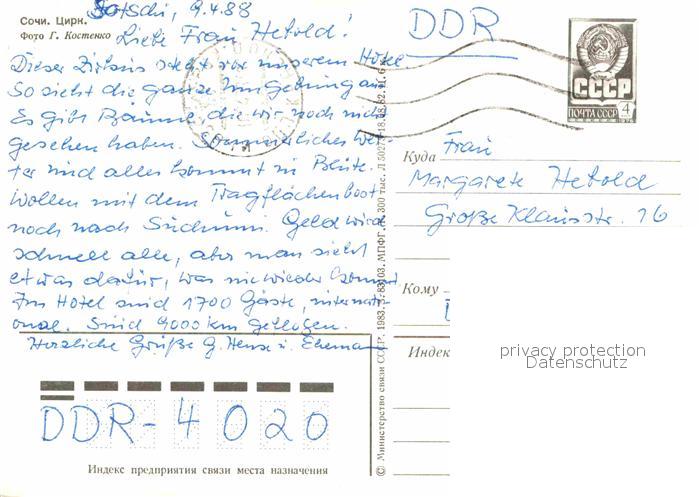 Сочи. Цирк.
Фото Г. Костенко
Sotschi, 9.4.88
Liebe Frau Hetold!
Dieser Zirkus steht vor unserem Hotel
So sieht die ganze Umgebung aus
Es gibt Bäume, die wir noch nicht
gesehen haben. Sommerliches Wet-
ter und alles kommt in Blüte.
Wollen mit dem Tragflächenboot
noch nach Suchumi. Geld wird
schnell alle, aber man sieht
etwas dafür, was nie wieder kommt
Im Hotel sind 1700 Gäste, internati-
onal. Sind 4000 km geflogen.
Herzliche Grüße G. Hense u. Ehemann
DDR - 4020
Индекс предприятия связи места назначения
© Министерство связи СССР. 1983.
DDR
СССР
ПОЧТА СССР
4
Куда
Frau
Margarete Hetold
Große Klausstr. 16
Кому
Индек
privacy protection
Datenschutz